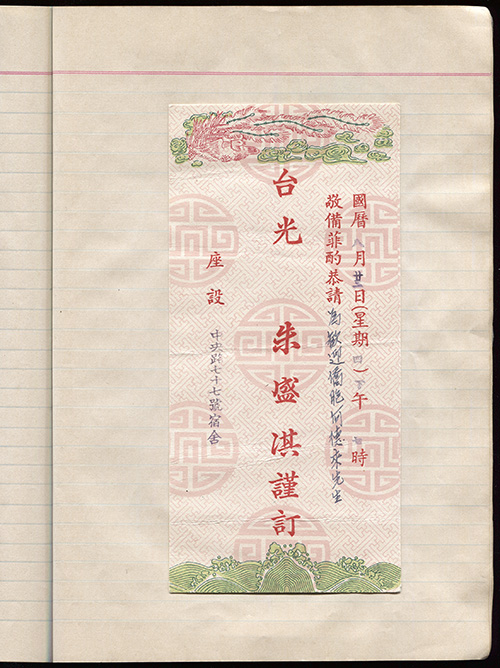 國曆八月廿三日(星期四)下午七時
敬備菲酌恭請為歡迎僑胞何德來先生
台光
朱盛淇謹訂
座設
中央路七十七號宿舍